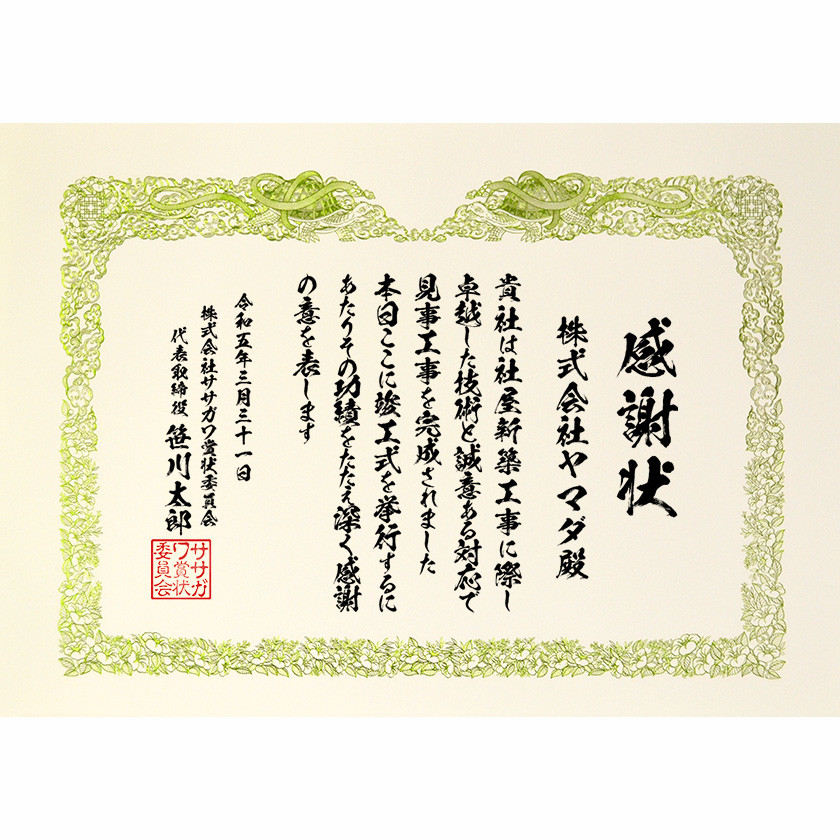 感謝状
株式会社ヤマダ殿
貴社は社屋新築工事に際し
卓越した技術と誠意ある対応で
見事工事を完成されました
本日ここに竣工式を挙行するに
あたりその功績をたたえ深く感謝
の意を表します
令和五年三月三十一日
株式会社ササガワ賞状委員会
代表取締役 笹川太郎
ササガ
ワ賞状
委員会